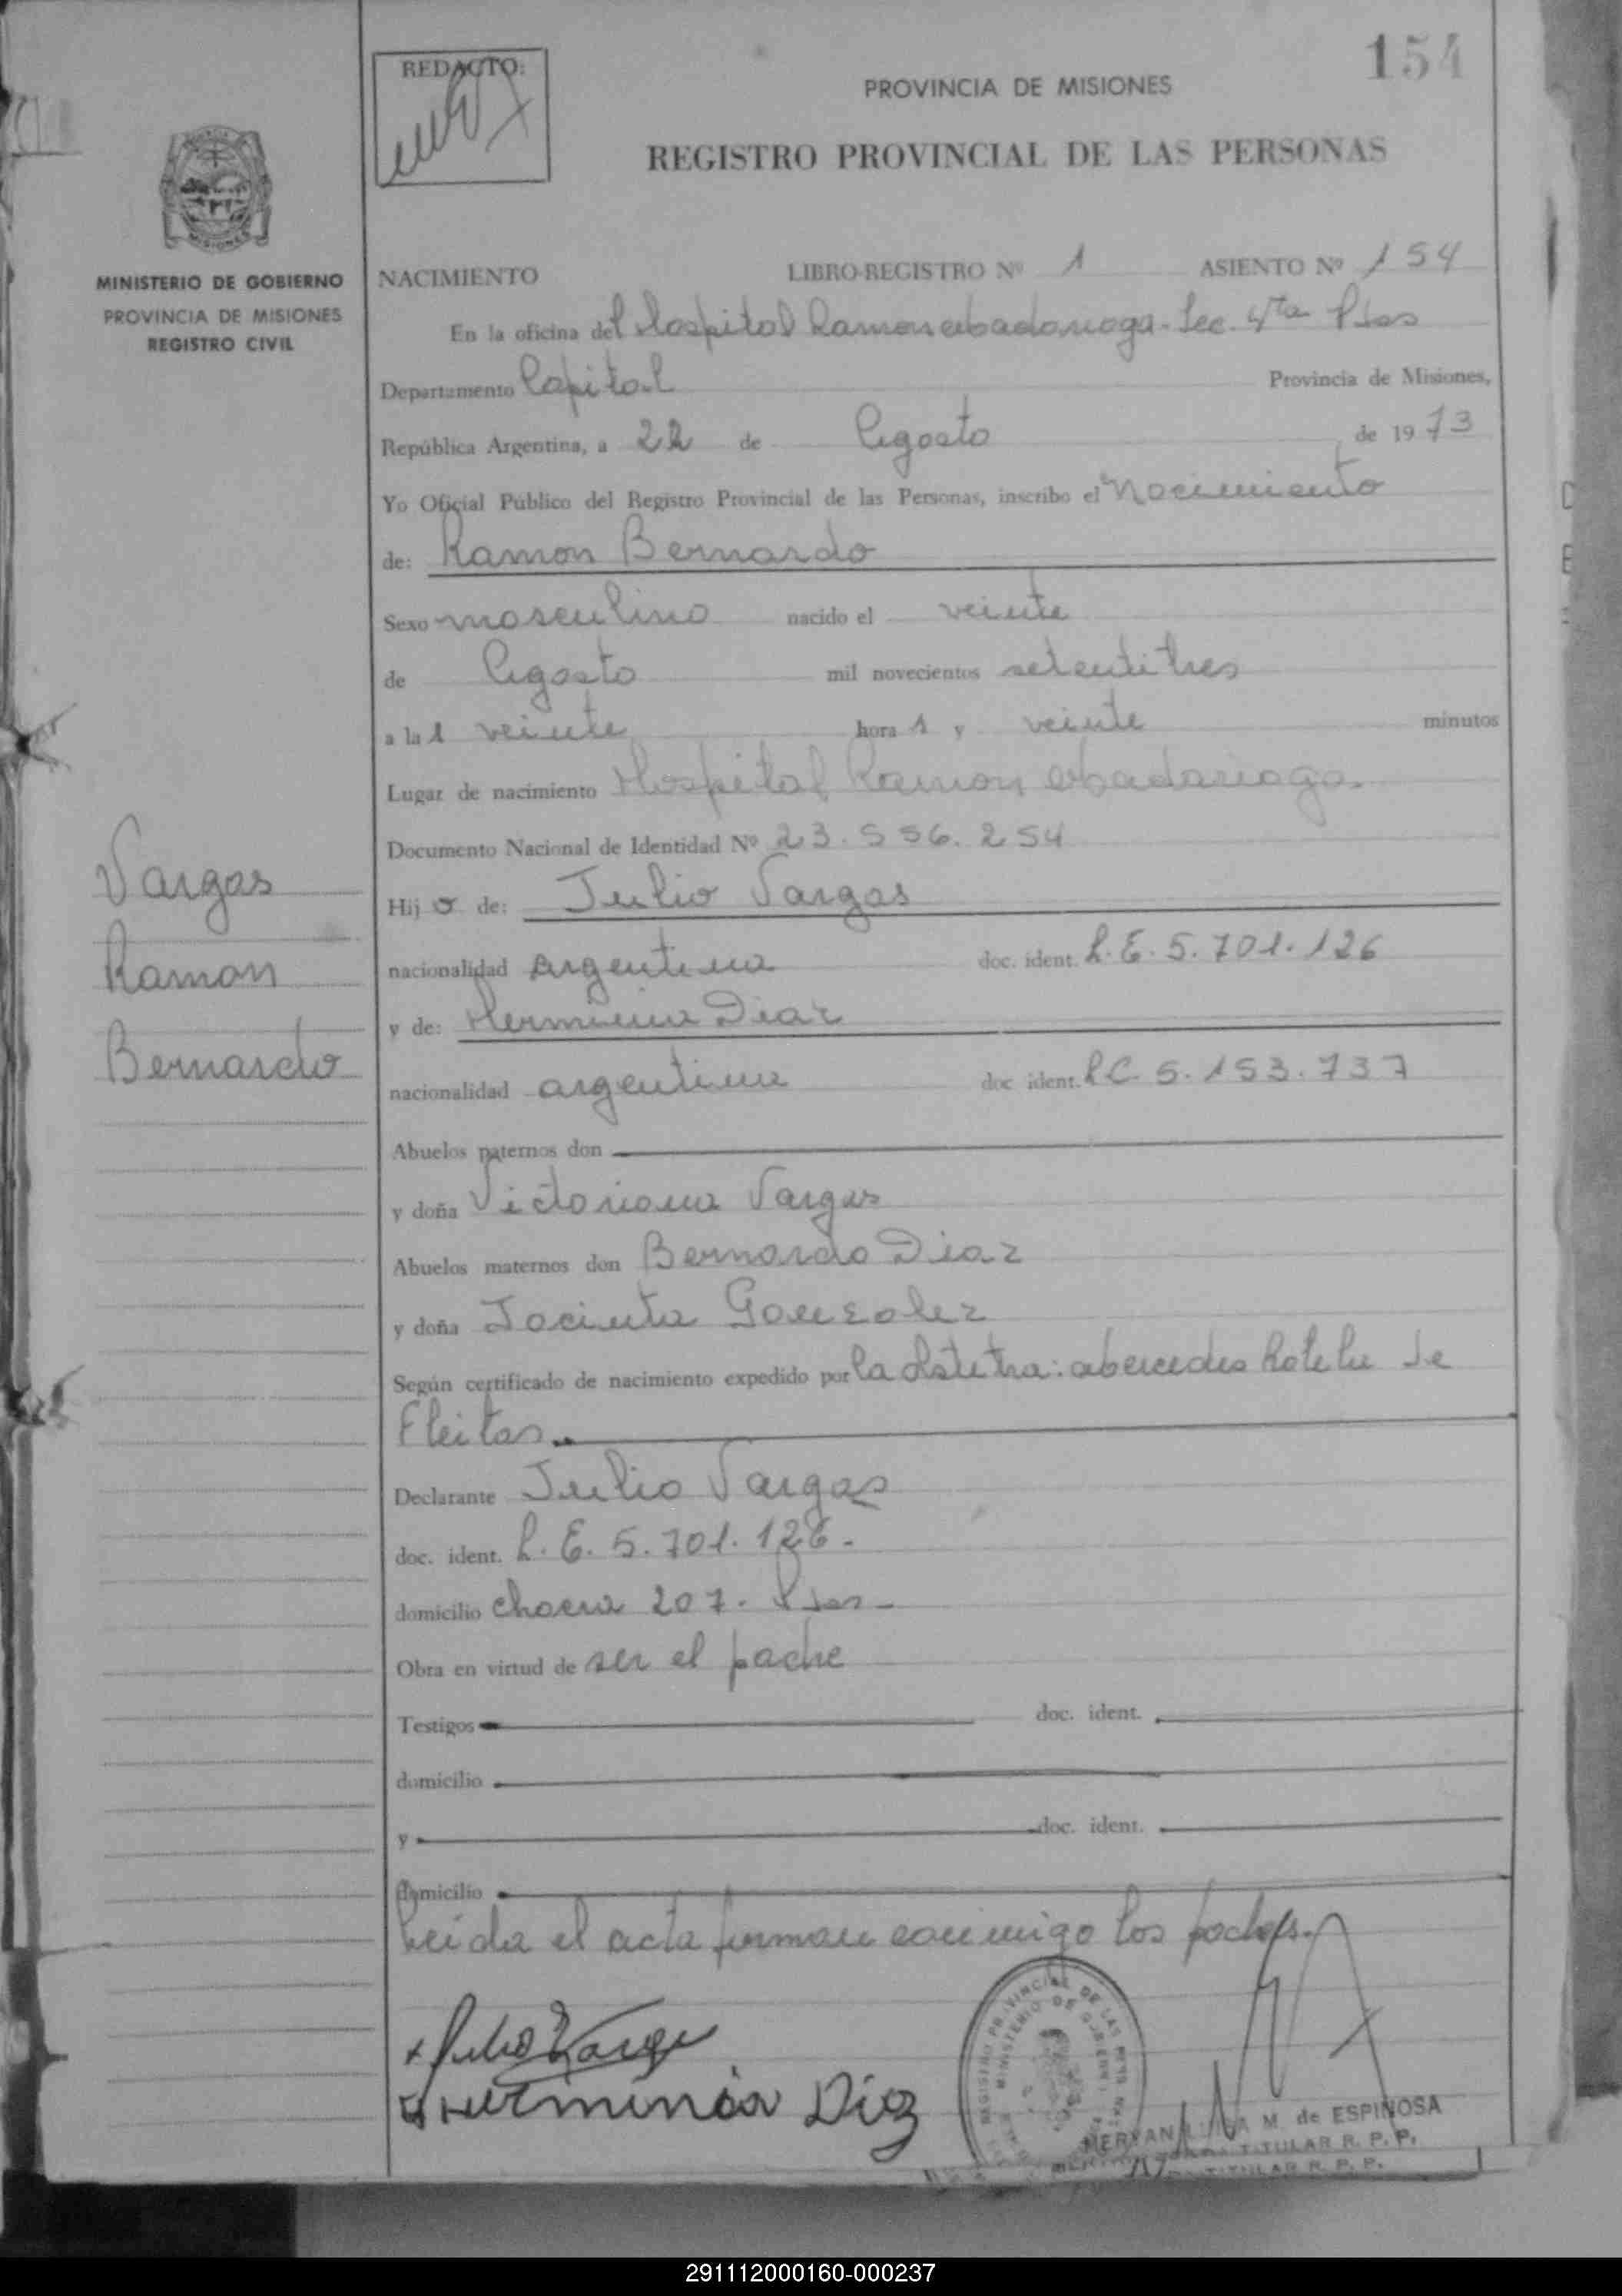 154
REDACTO:
PROVINCIA DE MISIONES
REGISTRO PROVINCIAL DE LAS PERSONAS
MISIONES
MINISTERIO DE GOBIERNO
PROVINCIA DE MISIONES
REGISTRO CIVIL
NACIMIENTO LIBRO-REGISTRO Nº 1 ASIENTO Nº 154
En la oficina del Hospital Ramon Madariaga - Sec. 4ta Pdas
Departamento Capital Provincia de Misiones,
República Argentina, a 22 de Agosto de 1973
Yo Oficial Público del Registro Provincial de las Personas, inscribo el Nacimiento
de: Ramon Bernardo
Sexo masculino nacido el veinte
de Agosto mil novecientos setentitres
a las veinte horas y veinte minutos
Lugar de nacimiento Hospital Ramon Madariaga.
Documento Nacional de Identidad Nº 23.556.254
Hijo de: Julio Vargas
nacionalidad argentina doc. ident. L.E. 5.701.126
y de: Herminia Diaz
nacionalidad argentina doc ident. L.C. 5.153.737
Vargas
Ramon
Bernardo
Abuelos paternos don
y doña Victoriana Vargas
Abuelos maternos don Bernardo Diaz
y doña Jacinta Gonzalez
Según certificado de nacimiento expedido por la Obstetra: Mercedes Rotela de
Fleitas.
Declarante Julio Vargas
doc. ident. L.E. 5.701.126.
domicilio Chacra 207. Pdas -
Obra en virtud de ser el padre
Testigos doc. ident.
domicilio
y doc. ident.
domicilio
Leida el acta firman conmigo los padres.
Julio Vargas
Herminia Díaz
REGISTRO PROVINCIAL DE LAS PERSONAS
MINISTERIO DE GOBIERNO
M. de ESPINOSA
TITULAR R. P. P.
TITULAR R. P. P.
291112000160-000237